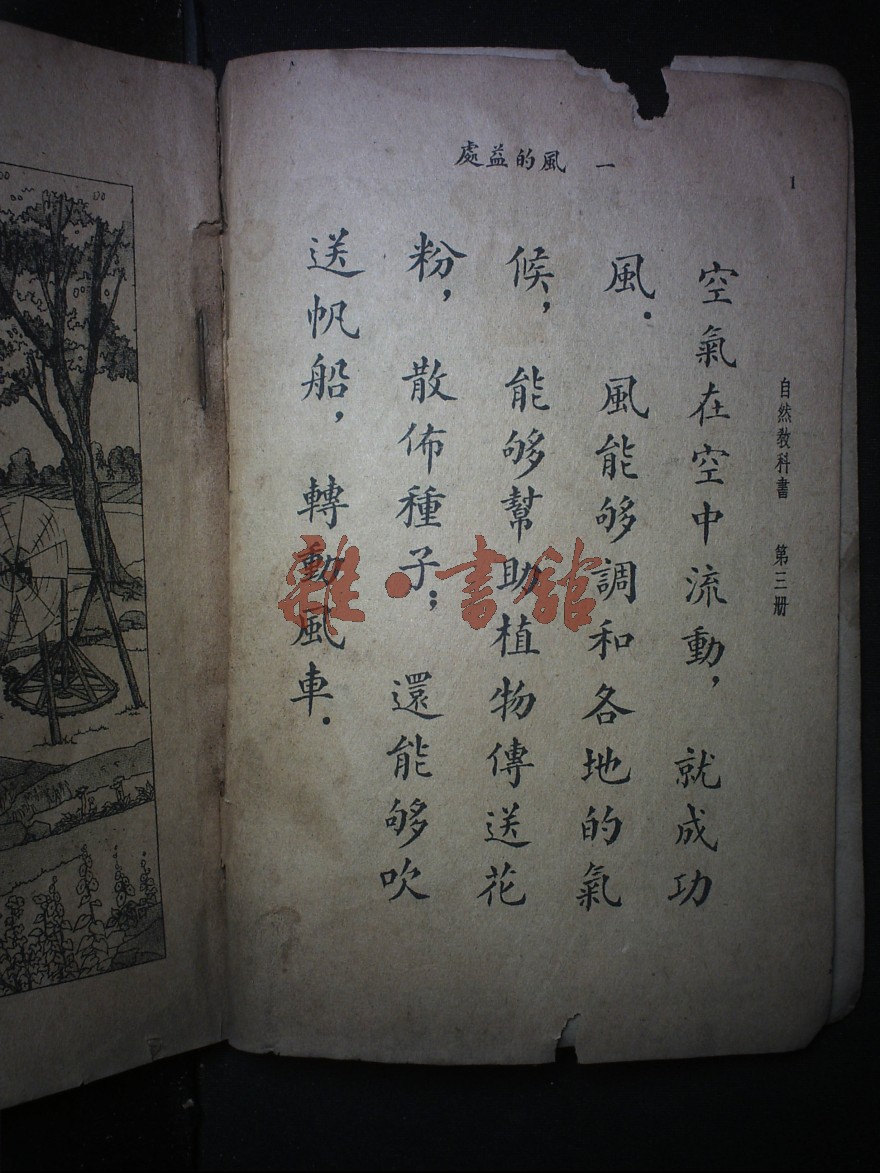 1
自然教科書 第三册
一 風的益處
空氣在空中流動，就成功
風．風能够調和各地的氣
候，能够幫助植物傳送花
粉，散佈種子；還能够吹
送帆船，轉動風車．
雜·書館